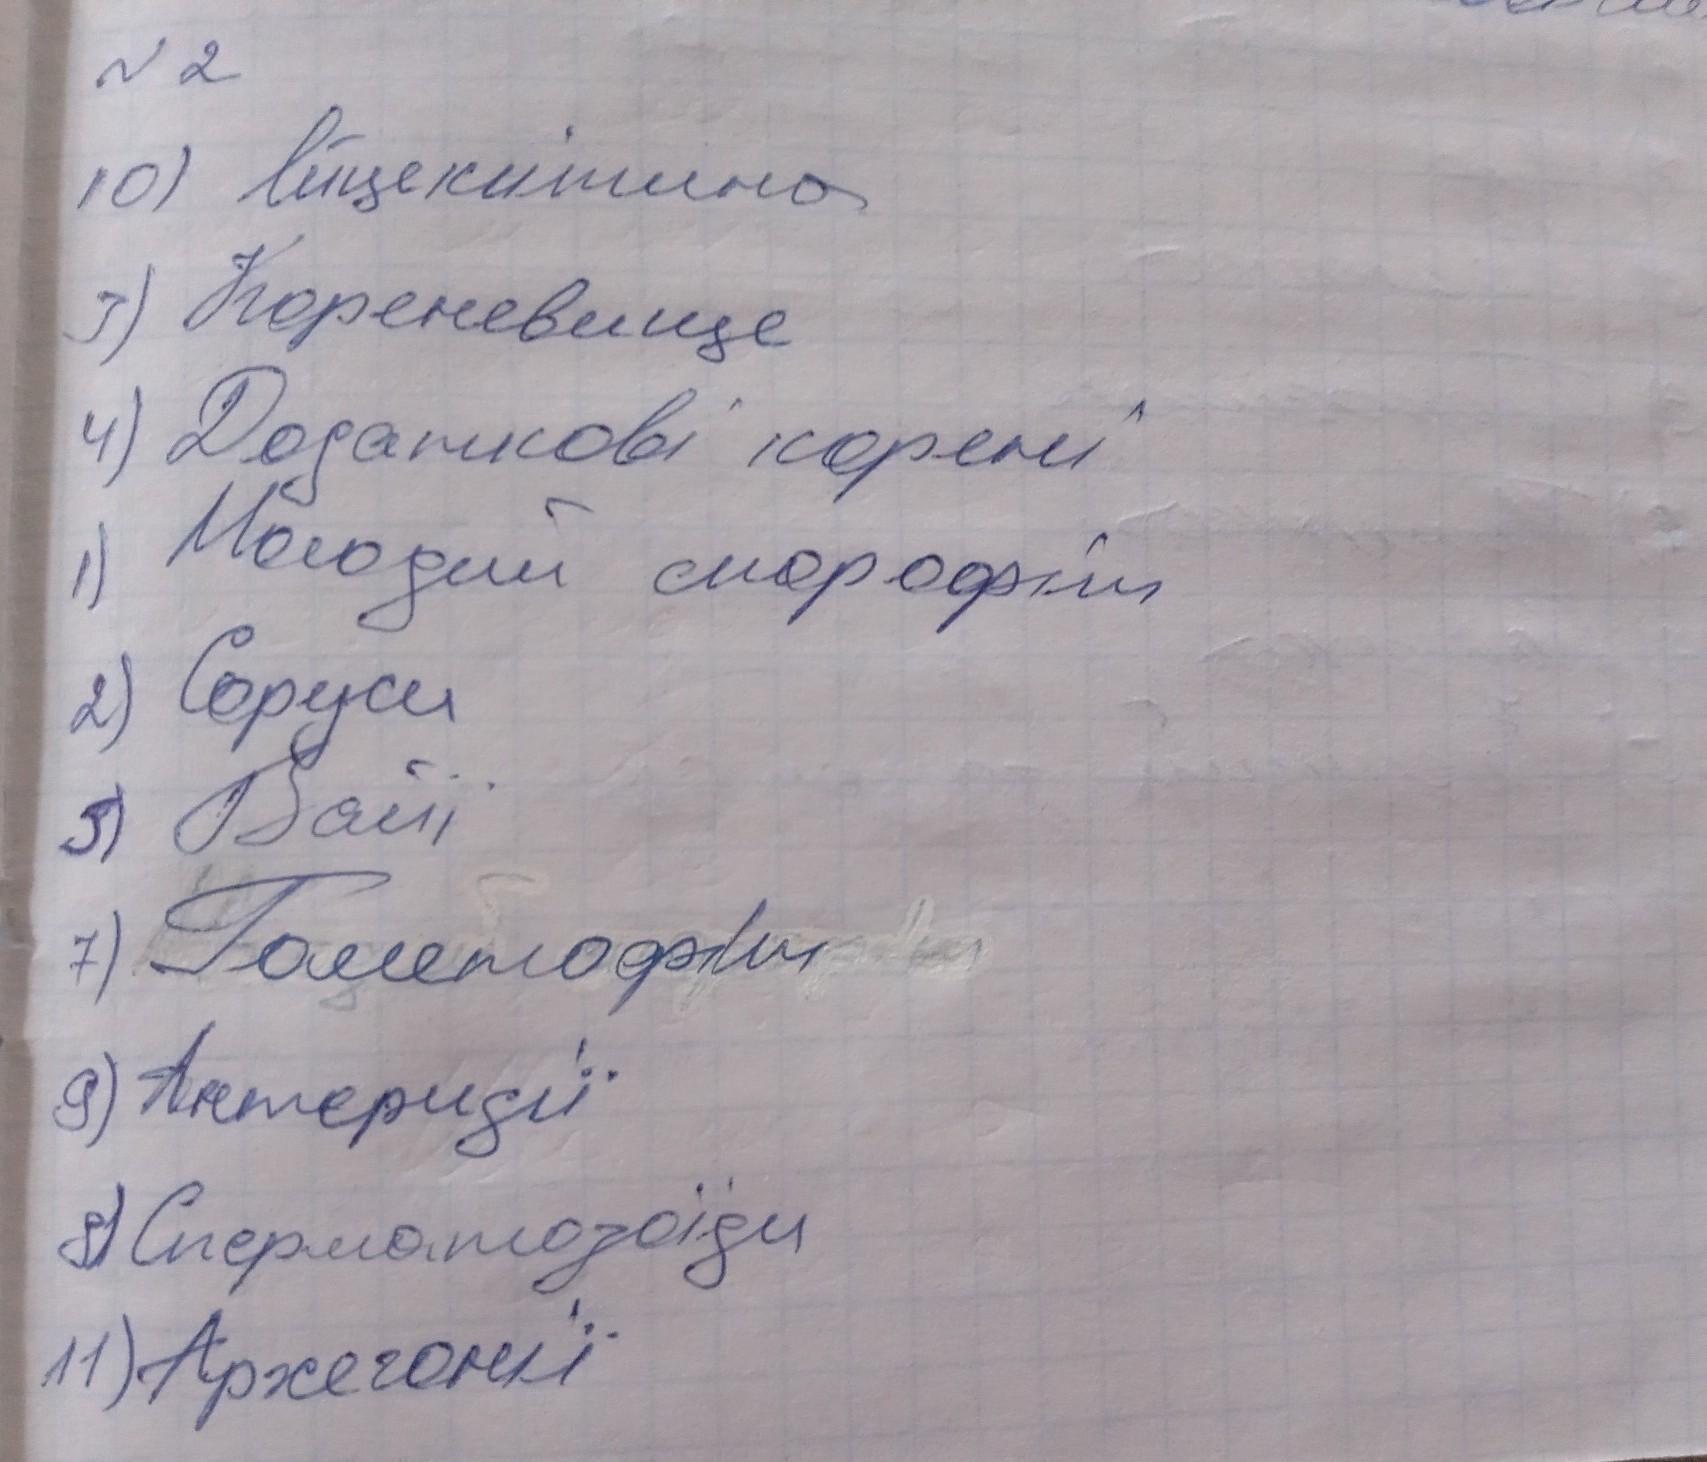 № 2
10) Яйцеклітина
3) Кореневище
4) Додаткові корені
1) Молодий спорофіт
2) Соруси
5) Вайї
7) Гаметофіт
9) Антеридії
8) Сперматозоїди
11) Архегонії